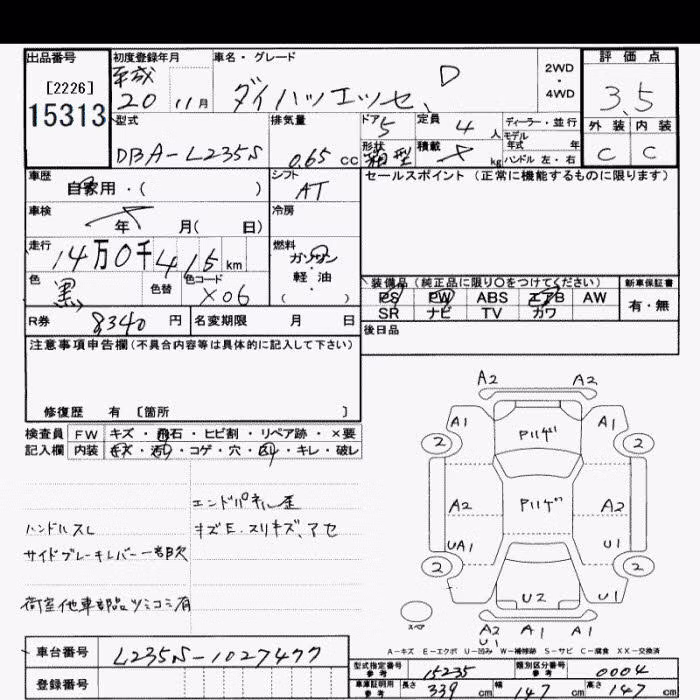 出品番号
[2226]
15313
初度登録年月
平成
20 11月
車名・グレード
ダイハツエッセ、 D
2WD
・
4WD
評価点
3.5
外装 内装
C C
型式
DBA-L235S
排気量
0.65 cc
ドア
5
定員
4 人
ディーラー・並行
モデル
年式 年
ハンドル 左・右
形状
箱型
積載
kg
車歴
自家用・( )
シフト
AT
セールスポイント(正常に機能するものに限ります)
車検
年 月( 日)
冷房
走行
14万0千415 km
燃料
ガソリン
・
軽・油
( )
色
黒
色替
色コード
X06
装備品(純正品に限り○をつけてください)
PS PW ABS エアB AW
SR ナビ TV カワ
新車保証書
有・無
R券 8340 円
名変期限 月 日
後日品
注意事項申告欄(不具合内容等は具体的に記入して下さい)
修復歴 有 [箇所 ]
検査員
記入欄
FW キズ・飛石・ヒビ割・リペア跡・×要
内装 キズ・汚・コゲ・穴・凹・キレ・破レ
エンドパネル歪
ハンドルスレ
キズE.スリキズ、アセ
サイドブレーキレバー一部欠
荷室他車部品ツミコミ有
A2 A2
A1 Pリゲ A1
2 2
A2 Pリゲ A2
UA1 U1
2 2
U2 U1
スペア
A2 A1 A1
U1
A-キズ E-エクボ U-凹み W-補修跡 S-サビ C-腐食 XX-交換済
車台番号 L235S-1027477
登録番号
型式指定番号
参考
15235
類別区分番号
参考
0004
車庫証明用
参考
長さ 339 cm 幅 147 cm 高さ 147 cm